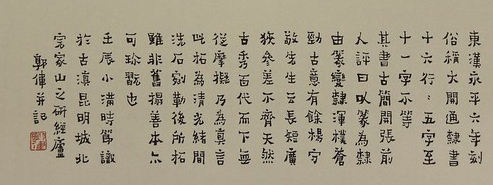 東漢永平六年刻
俗稱大開通隸書
十六行〻五字至
十一字不等
其書古簡開張前
人評曰以篆為隸
由篆變隸渾樸蒼
勁古意有餘楊守
敬生生云長短廣
狹參差不齊天然
古秀百代而下無
從摹擬乃為真言
此拓為清光緒間
洗石剜勒後所拓
雖非舊搨善本亦
可珍翫也
壬辰小滿時爲識
於古滇昆明城北
寄家山之研經廬
郭偉并記